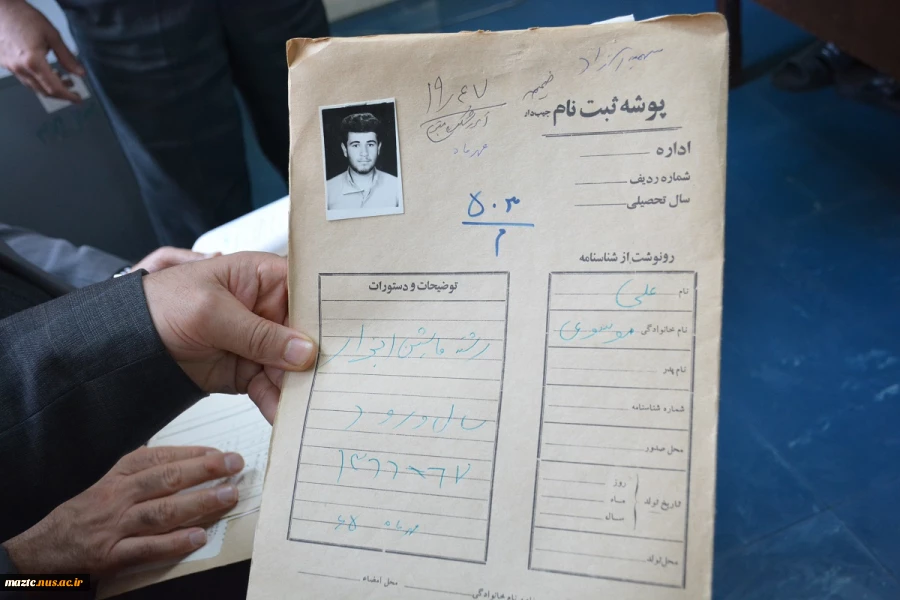 پوشه ثبت نام
اداره
شماره ردیف
سال تحصیلی
۵۰۳
م
رونوشت از شناسنامه
نام علی
نام خانوادگی موسوی
نام پدر
شماره شناسنامه
محل صدور
تاریخ تولد
روز
ماه
سال
محل تولد
توضیحات و دستورات
رشته ماشین ابزار
سال ورود
۱۳۶۶-۶۷
مهرماه ۶۵
محل امضاء
نام خانوادگی
maztc.nus.ac.ir